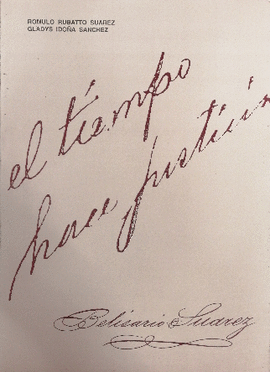 ROMULO RUBATTO SUAREZ
GLADYS IDOÑA SANCHEZ
el tiempo
hace justicia
Belisario Suarez